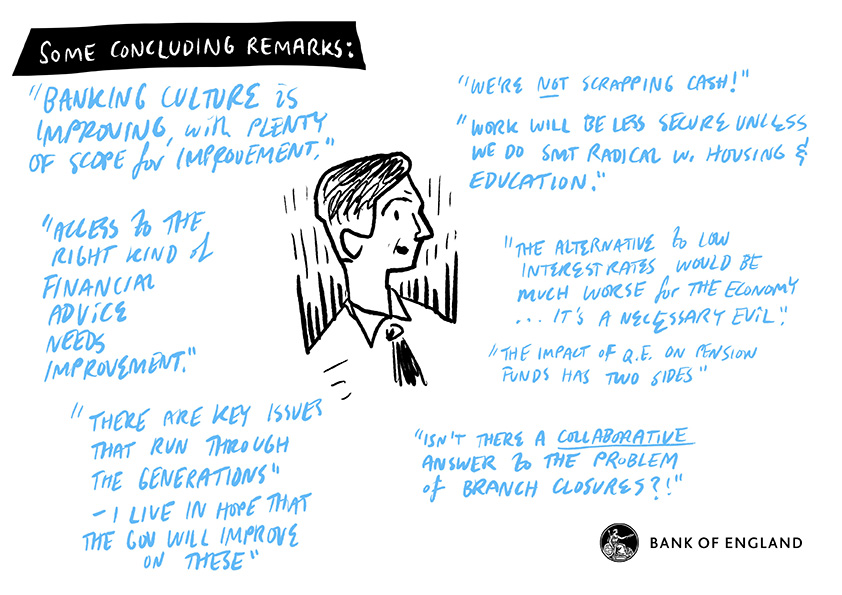 SOME CONCLUDING REMARKS:
"BANKING CULTURE is
IMPROVING, with PLENTY
OF SCOPE for IMPROVEMENT."
"ACCESS to THE
RIGHT KIND of
FINANCIAL
ADVICE
NEEDS
IMPROVEMENT."
"THERE ARE KEY ISSUES
THAT RUN THROUGH
THE GENERATIONS"
- I LIVE IN HOPE THAT
THE GOV WILL IMPROVE
ON THESE"
"WE'RE NOT SCRAPPING CASH!"
"WORK WILL BE LESS SECURE UNLESS
WE DO SMT RADICAL w. HOUSING &
EDUCATION."
"THE ALTERNATIVE to LOW
INTEREST RATES WOULD BE
MUCH WORSE for THE ECONOMY
... IT'S A NECESSARY EVIL."
"THE IMPACT OF Q.E. ON PENSION
FUNDS HAS TWO SIDES"
"ISN'T THERE A COLLABORATIVE
ANSWER to THE PROBLEM
of BRANCH CLOSURES?!"
BANK OF ENGLAND